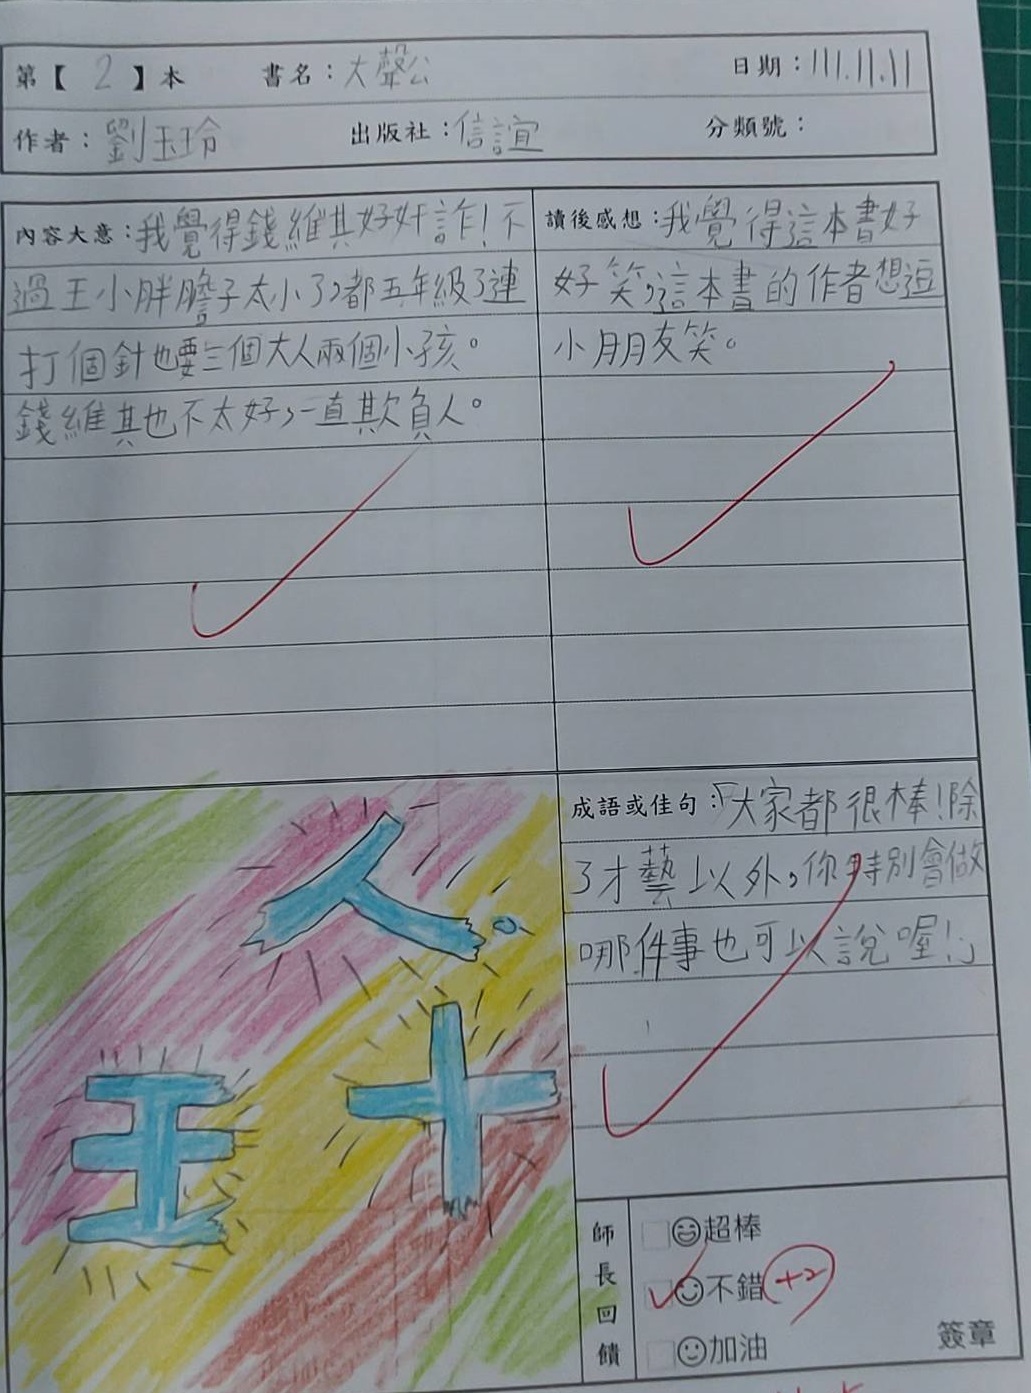 第【 2 】本 書名：大聲公 日期：111.11.11
作者：劉玉玲 出版社：信誼 分類號：
內容大意：我覺得錢維其好奸詐！不
過王小胖膽子太小了，都五年級了連
打個針也要三個大人兩個小孩。
錢維其也不太好，一直欺負人。
讀後感想：我覺得這本書好
好笑，這本書的作者想逗
小朋友笑。
成語或佳句：「大家都很棒！除
了才藝以外，你特別會做
哪件事也可以說喔！」
人
王
十
師長回饋
超棒
不錯 +2
加油
簽章